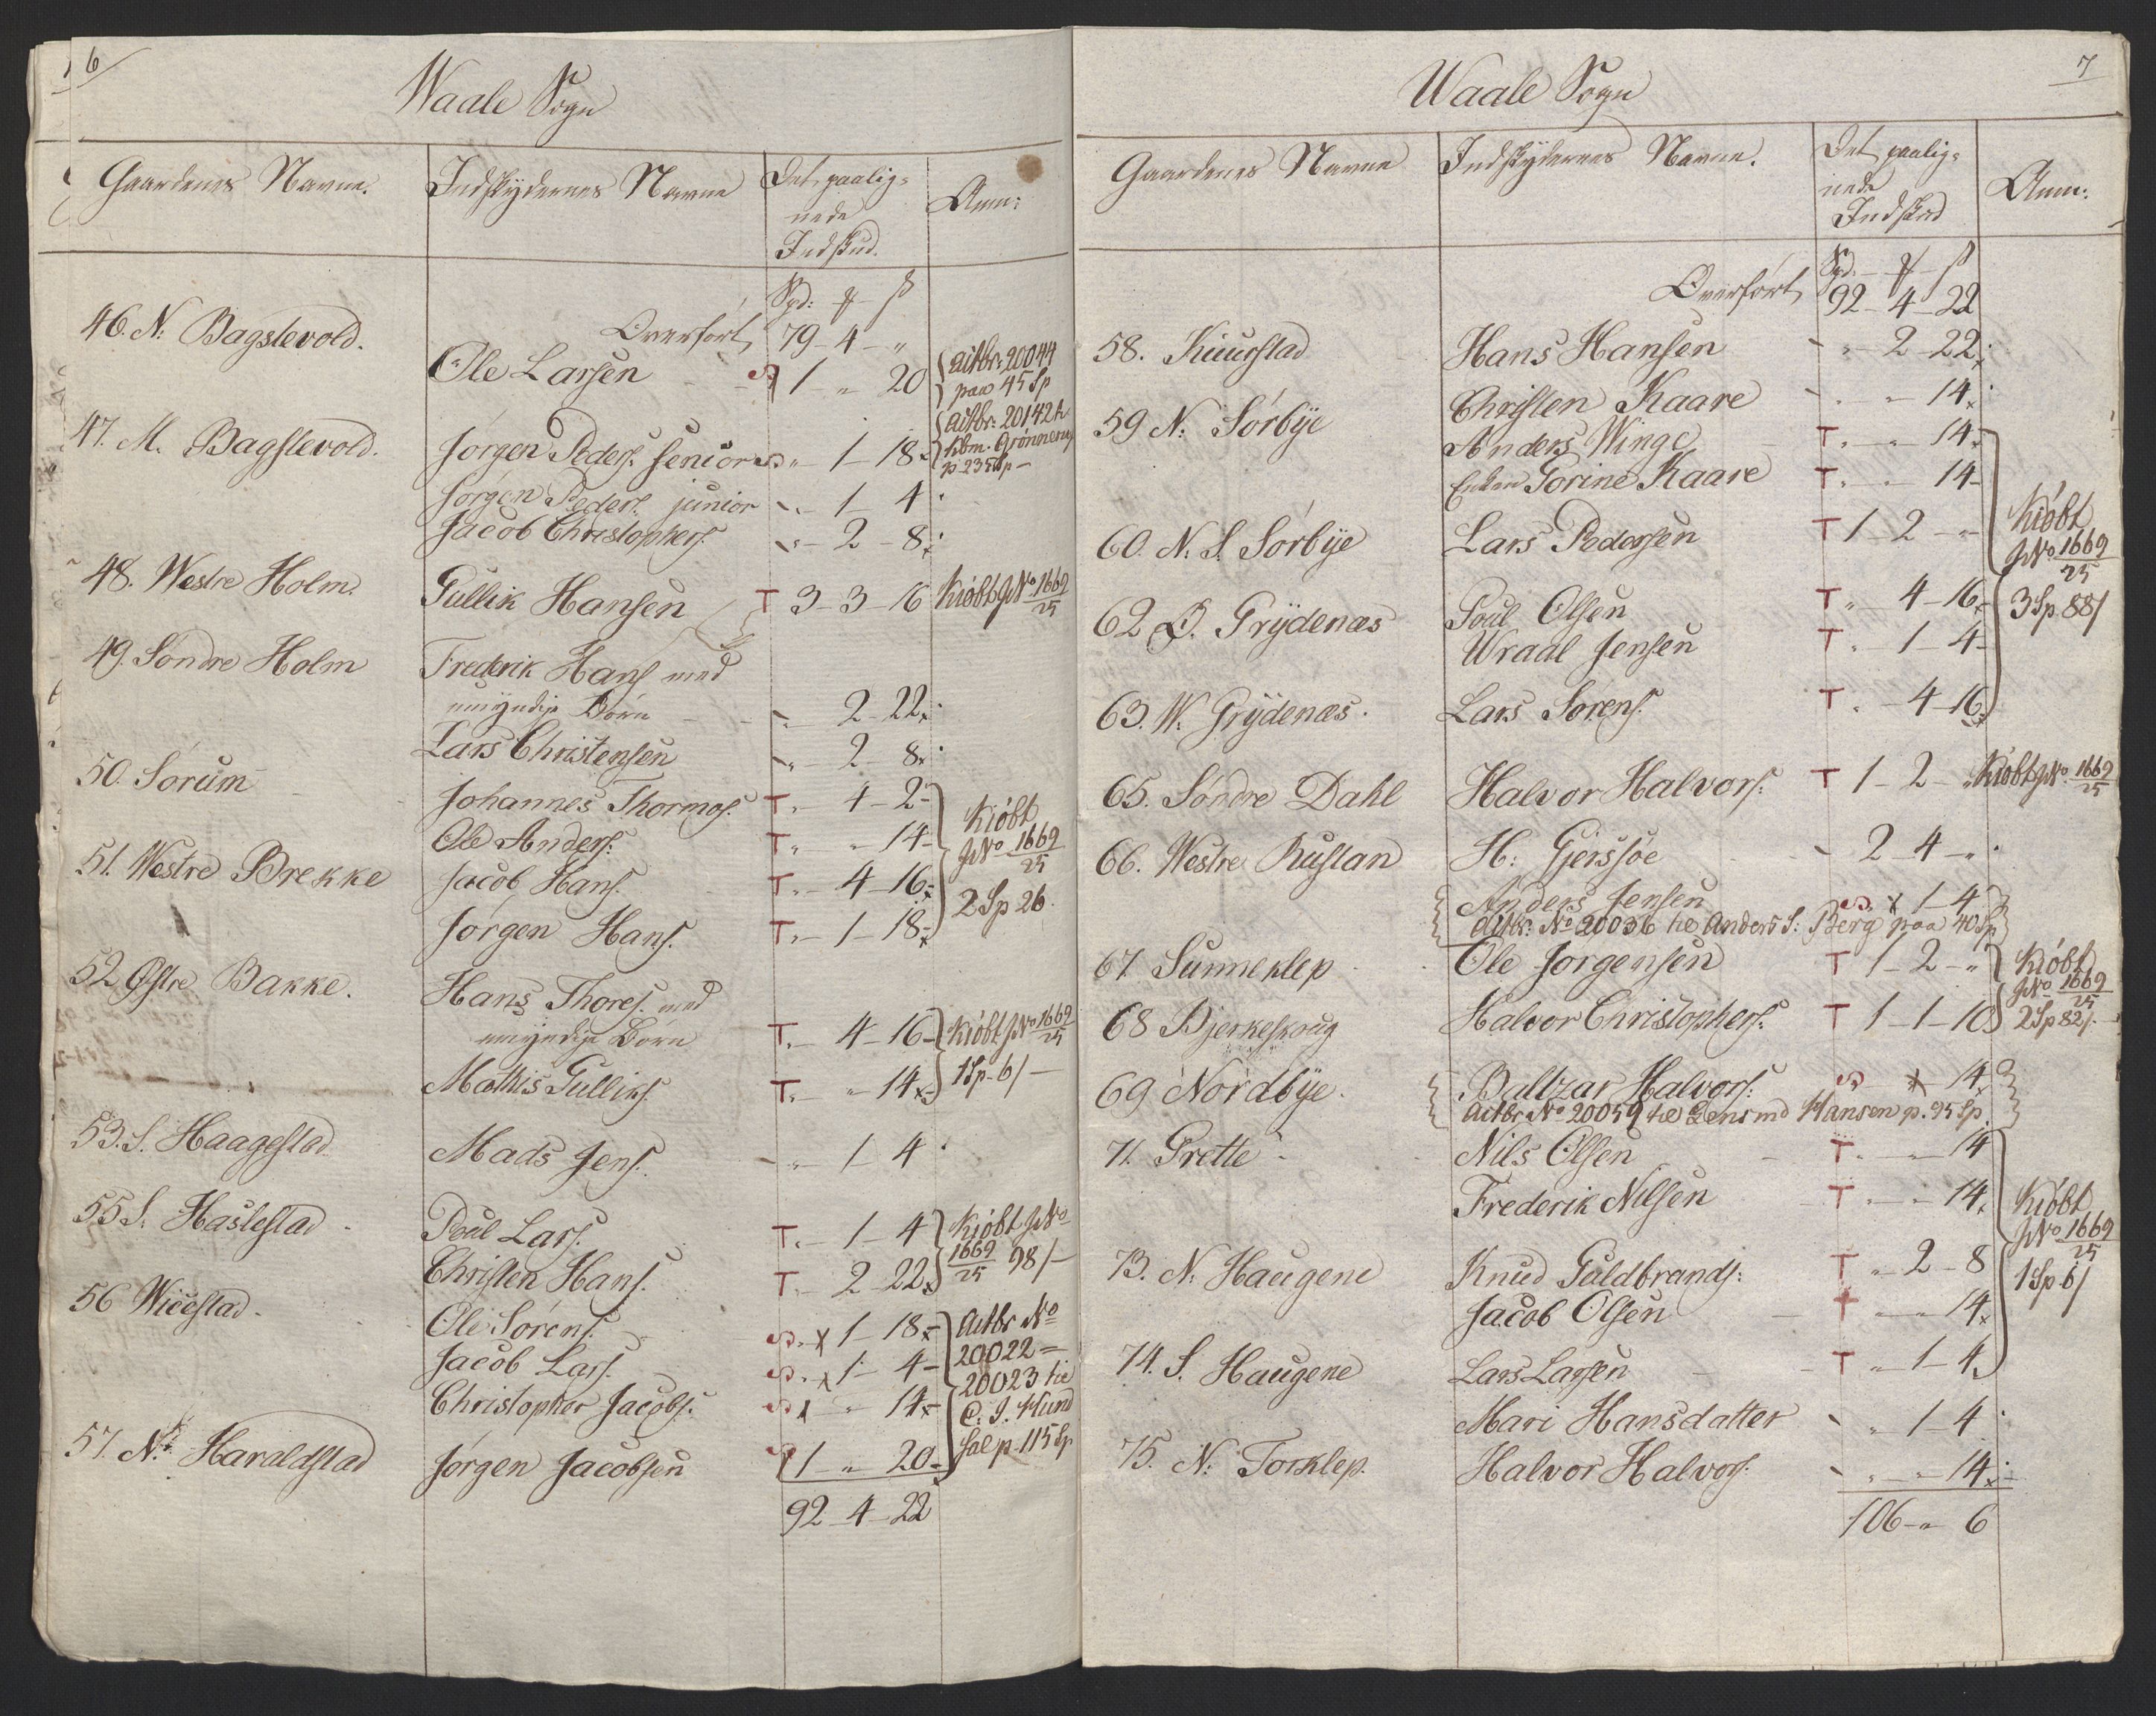 6
Waale Sogn
Gaardenes Navne. Indskydernes Navne Det paalig= Anm:
nede
Indskud.
Spd: ß
Overført 79-4-"
46. N: Bagslevold. Ole Larsen 1-"-20 Actbr: 20044
paa 45 Sp
47. M. Bagslevold. Jørgen Peders. senior "-1-18 Actbr: 20142
p 235 Sp-
Jørgen Peders. junior "-1-4
Jacob Christophers. "-2-8
48. Westre Holm. Gullik Hansen T 3-3-16 Kiøbt JNo 1669/25
49. Søndre Holm Frederik Hans. med
umyndige Børn "-2-22
Lars Christensen "-2-8
50. Sørum Johannes Thormos. T "-4-2 Kiøbt
Ole Anders. T "-"-14 JNo 1669/25
51. Westre Brekke Jacob Hans. T "-4-16 2 Sp 26.
Jørgen Hans. T "-1-18
52 Østre Bakke. Hans Thores. med
umyndige Børn T "-4-16 Kiøbt JNo 1669/25
Mathis Gulliks. T "-"-14 1 Sp-6/-
53. S. Haagestad Mads Jens. "-1-4
55 S. Haslestad Poul Lars. T "-1-4 Kiøbt JNo
Christen Hans. T "-2-22 1669/25 98/-
56 Wicestad Ole Sørens. "-1-18 Actbr No
Jacob Lars. "-1-4 20022=
Christopher Jacobs. "-"-14 20023 til
57. N: Haraldstad Jørgen Jacobsen 1-"-20 p 115 Sp
92-4-22
7
Waale Sogn
Gaardenes Navne Indskydernes Navne. Det paalig= Anm:
nede
Indskud
Spd. ß
Overført 92-4-22
58. Kiuurstad Hans Hansen "-2-22
59 N: Sørbye Christen Kaare "-"-14
Anders Winge T "-"-14
Enken Gorine Kaare T "-"-14
60. N. S. Sørbye Lars Pedersen T 1-2-" Kiøbt
JNo 1669/25
62 Ø. Grydenæs Poul Olsen T "-4-16 3 Sp 88/
Wraal Jensen T "-1-4
63. W: Grydenæs. Lars Sørens. T "-4-16
65. Søndre Dahl Halvor Halvors. T 1-2-" Kiøbt JNo 1669/25
66. Westre Rustan H: Gjerssøe 2-4-"
Anders Jensen "-1-4
Actbr: No 20036 til Anders S: Berg paa 40 Sp
67 Sunneklep Ole Jørgensen T 1-2-" Kiøbt
JNo 1669/25
68 Bjerkeskoug Halvor Christophers. T 1-1-10 2 Sp 82/-
69 Nordbye. Baltzar Halvors. "-14
Actbr No 20059 til Lensmd Hansen p. 95 Sp
71. Grette Nils Olsen T "-"-14
Frederik Nilsen T "-"-14 Kiøbt
JNo 1669/25
73. N: Haugene Knud Guldbrands: T "-2-8 1 Sp 6/
Jacob Olsen T "-"-14
74. S. Haugene Lars Larsen T "-1-4
Mari Hansdatter "-1-4
75. N: Torklep. Halvor Halvors. "-"-14
106-"-6